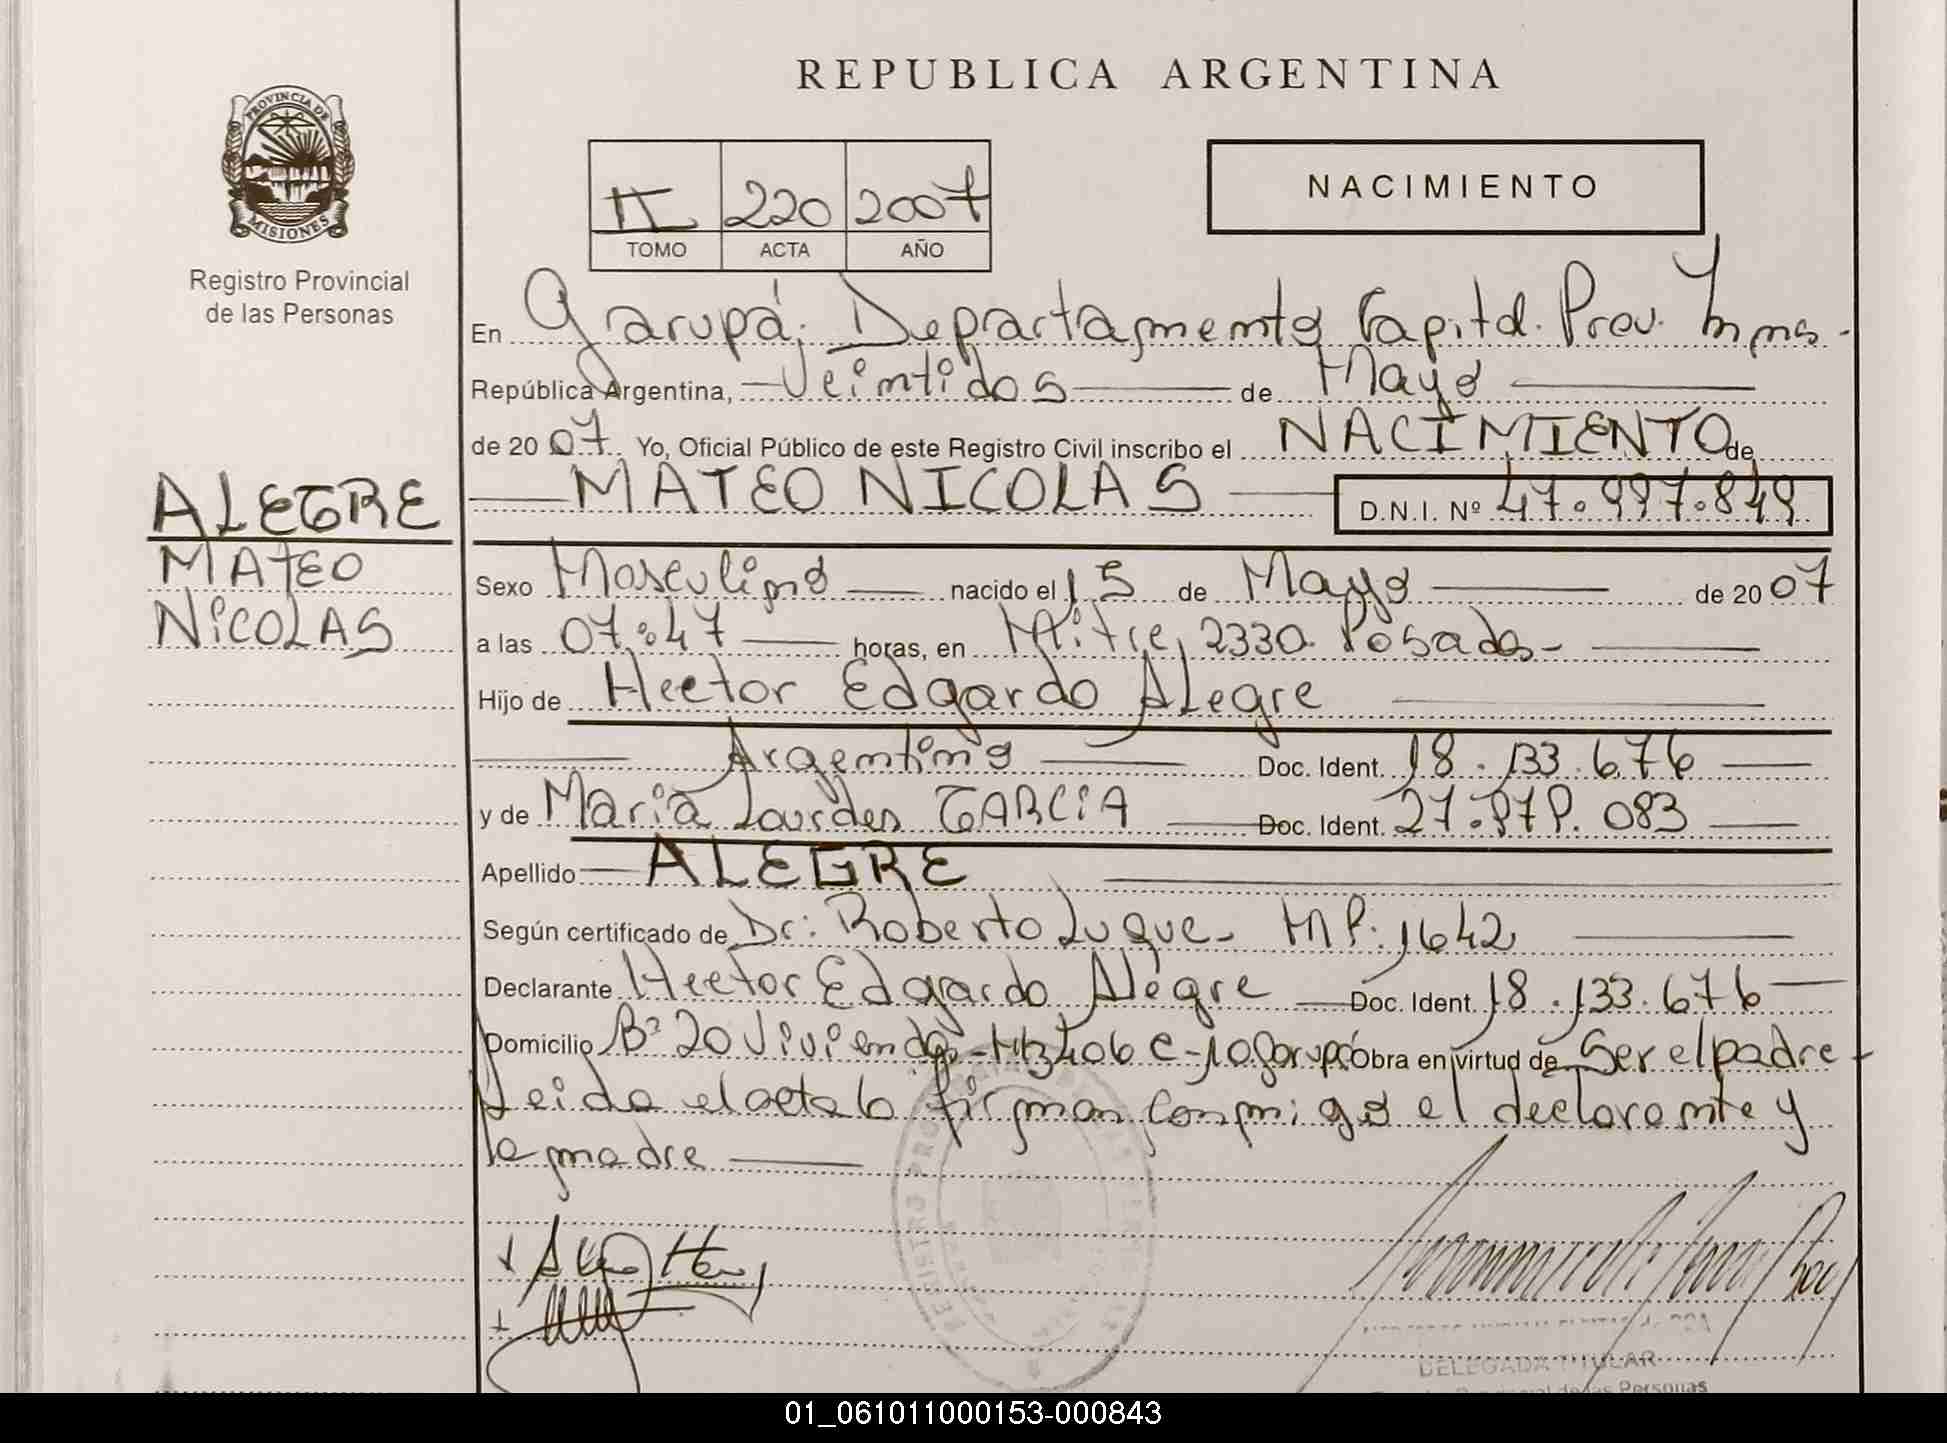 REPUBLICA ARGENTINA
PROVINCIA DE
MISIONES
Registro Provincial
de las Personas
II 220 2007
TOMO ACTA AÑO
NACIMIENTO
En Garupá; Departamento Capital. Prov. Mnes.-
República Argentina, Veintidos de Mayo
de 2007. Yo, Oficial Público de este Registro Civil inscribo el NACIMIENTO de
MATEO NICOLAS D.N.I. Nº 47.997.849
ALEGRE
MATEO
NICOLAS
Sexo Masculino nacido el 15 de Mayo de 2007
a las 07:47 horas, en Mitre, 2330. Posadas-
Hijo de Hector Edgardo Alegre
Argentino Doc. Ident. 18.133.676
y de Maria Lourdes GARCIA Doc. Ident. 27. 083
Apellido ALEGRE
Según certificado de Dr: Roberto Luque- MP: 1642
Declarante Hector Edgardo Alegre Doc. Ident. 18.133.676
Domicilio Bº 20 Viviendas- C-10 Garupá Obra en virtud de Ser el padre-
Leida el acta la firman conmigo el declarante y
la madre
DELEGADA TITULAR
Registro Provincial de las Personas
01_061011000153-000843